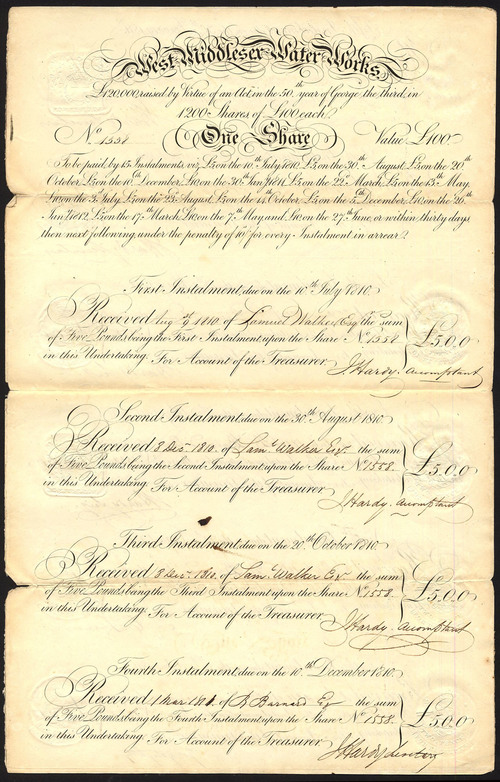 West Middlesex Water Works
£120,000, raised by Virtue of an Act in the 50th year of George the Third, in
1200 Shares of £100 each
No. 1558 One Share Value £100
To be paid by 15 Instalments, viz. £5 on the 10th July 1810, £5 on the 30th August, £5 on the 20th
October, £5 on the 10th December, £10 on the 30th Jany 1811, £5 on the 22d March, £5 on the 15th May,
£10 on the 5 July, £5 on the 25 August, £5 on the 14 October, £5 on the 5 December, £10 on the 26th
Jany 1812, £5 on the 17th March, £10 on the 7th May, and £10 on the 27th June, or within thirty days
then next following, under the penalty of 10/ for every Instalment in arrear.
First Instalment, due on the 10th July 1810.
Received Aug 1810. of Samuel Walker Esq the sum
of Five Pounds being the First Instalment upon the Share No. 1558
in this Undertaking. For Account of the Treasurer.
£5,0,0
J Hardy. accomptant
Second Instalment, due on the 30th August 1810.
Received 8 Dec. 1810. of Saml Walker Esq. the sum
of Five Pounds being the Second Instalment upon the Share No. 1558.
in this Undertaking. For Account of the Treasurer.
£5,0,0
J Hardy. accomptant
Third Instalment, due on the 20th October 1810.
Received 8 Dec. 1810. of Saml Walker Esq the sum
of Five Pounds being the Third Instalment upon the Share No. 1558.
in this Undertaking. For Account of the Treasurer.
£5,0,0
J Hardy. accomptant
Fourth Instalment, due on the 10th December 1810.
Received 1 Mar of B Barnard Esq the sum
of Five Pounds being the Fourth Instalment upon the Share No. 1558
in this Undertaking. For Account of the Treasurer.
£5,0,0
J Hardy